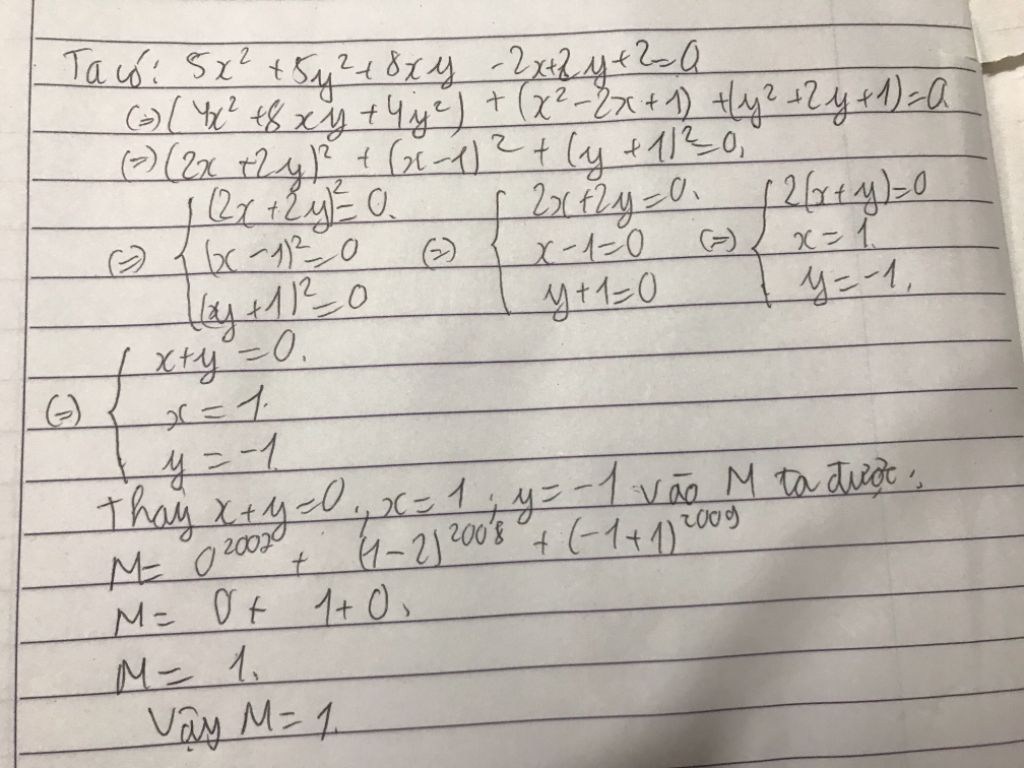 Ta có: 5x² + 5y² + 8xy - 2x + 2y + 2 = 0
(=) (4x² + 8xy + 4y²) + (x² - 2x + 1) + (y² + 2y + 1) = 0
(=) (2x + 2y)² + (x - 1)² + (y + 1)² = 0.
(2x + 2y)² = 0. 2x + 2y = 0. 2(x + y) = 0
(=) { (x - 1)² = 0 (=) { x - 1 = 0 (=) { x = 1.
(y + 1)² = 0 y + 1 = 0 y = -1.
x + y = 0.
(=) { x = 1.
y = -1
Thay x + y = 0; x = 1; y = -1 vào M ta được:
M = 0²⁰⁰⁷ + (1 - 2)²⁰⁰⁸ + (-1 + 1)²⁰⁰⁹
M = 0 + 1 + 0.
M = 1.
Vậy M = 1.